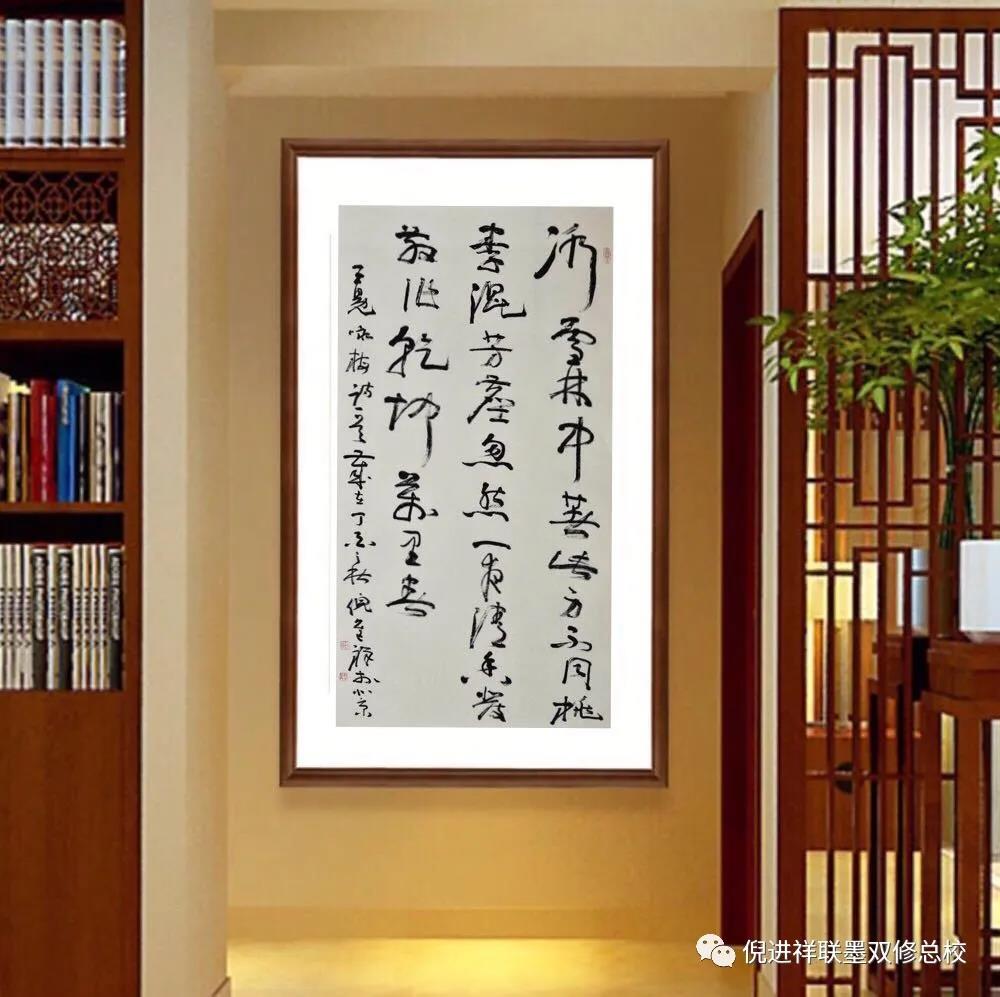 冰雪林中著此身不同桃
李混芳塵忽然一夜清香發
散作乾坤萬里春
王冕咏梅詩一首歲在丁酉之秋倪進祥於北京
倪进祥联墨双修总校